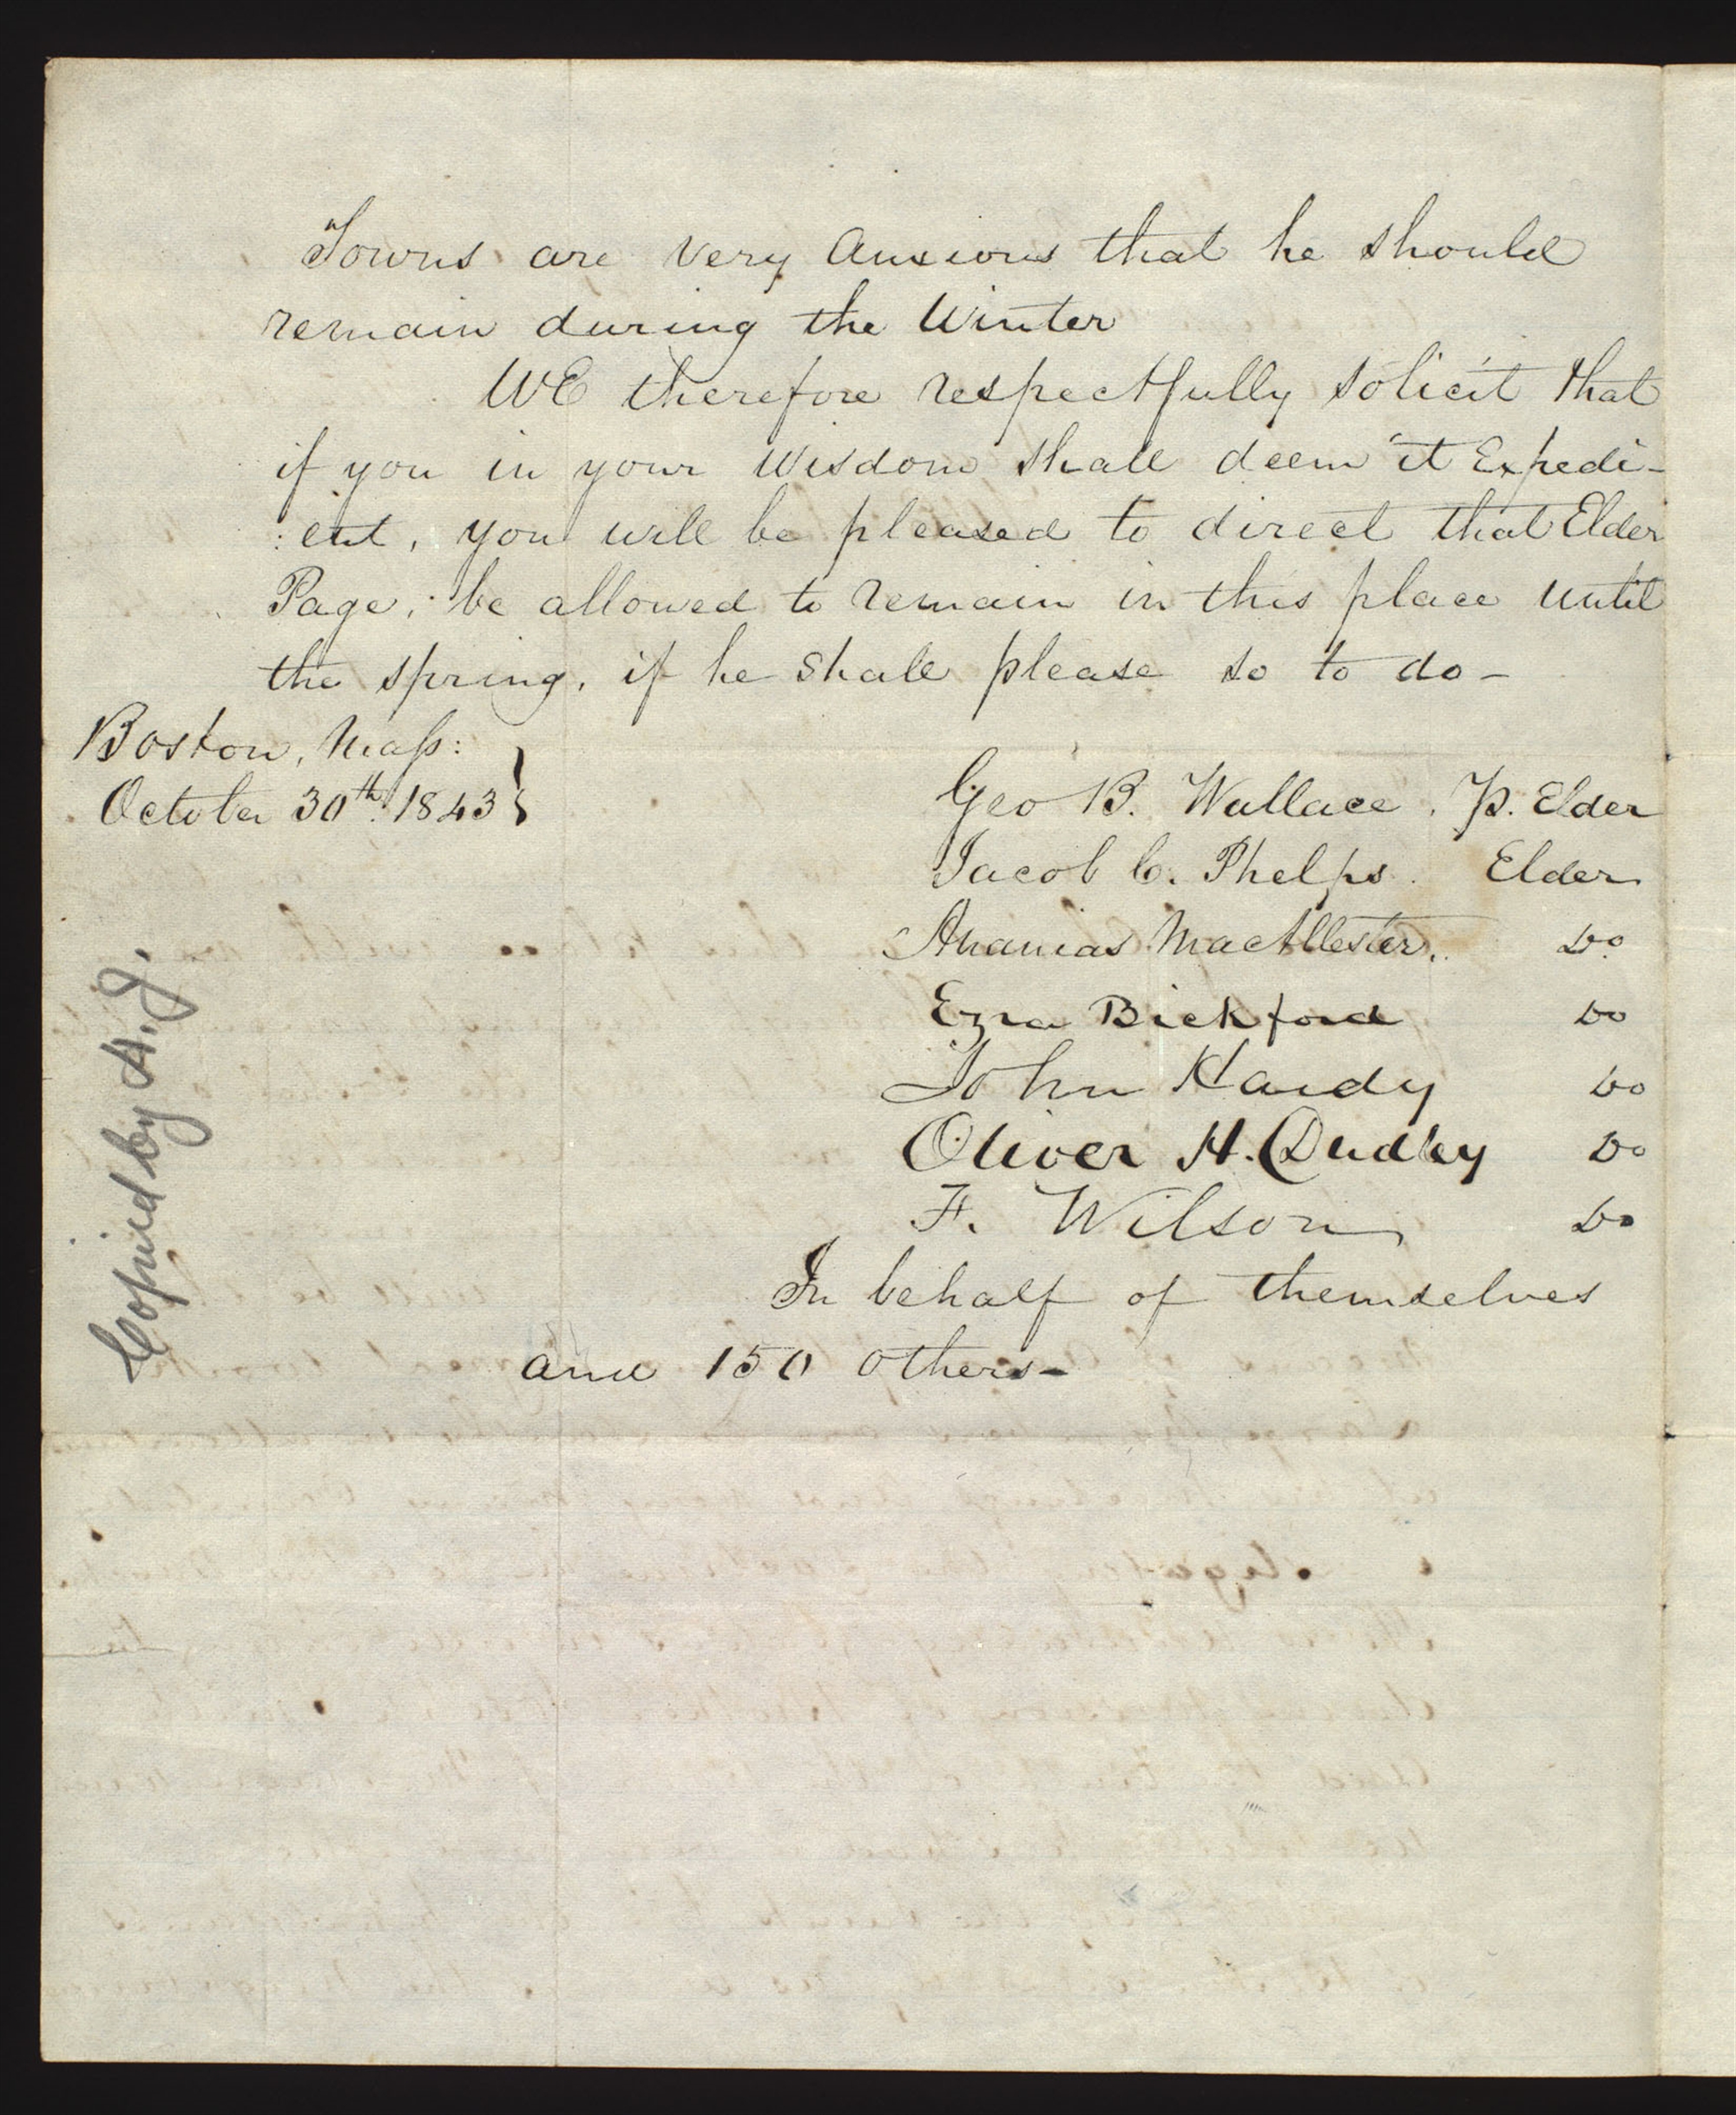 Towns are very Anxious that he should
remain during the Winter
WE therefore respectfully solicit that
if you in your Wisdom shall deem it Expedi-
:ent, you will be pleased to direct that Elder
Page, be allowed to remain in this place until
the spring, if he shall please so to do -
Boston, Mass:
October 30th 1843
Geo B. Wallace. P. Elder
Jacob C. Phelps. Elder
Ananias MacAllester. Do.
Ezra Bickford Do
John Hardy Do
Oliver H. Dudley Do
F. Wilson Do
In behalf of themselves
and 150 others-
Copied by A.J.